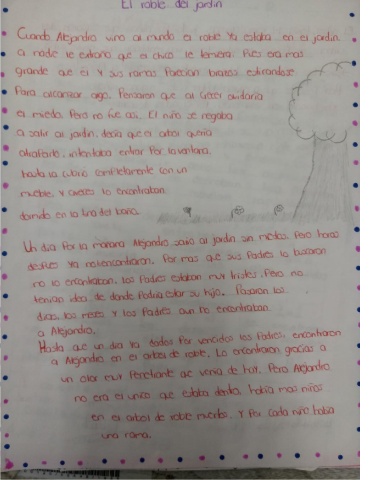 El roble del jardin
Cuando Alejandro vino al mundo el roble ya estaba en el jardin.
A nadie le extraño que el chico le temiera. Pues era mas
grande que el y sus ramas Parecian brazos estirandose
Para alcanzar algo. Pensaron que al crecer olvidaria
el miedo. Pero no fue asi. El niño se negaba
a salir al jardin, decia que el arbol queria
atraparlo, intentaba entrar Por la ventana,
hasta la cubrio completamente con un
mueble. Y aveces lo encontraban
dormido en la tina del baño.
Un dia Por la mañana Alejandro salio al jardin sin miedos. Pero horas
despues ya no lo encontraron. Por mas que sus Padres lo buscaron
no lo encontraban, los Padres estaban muy tristes. Pero no
tenian idea de donde Podria estar su hijo. Pasaron los
dias, los meses y los Padres aun no encontraban
a Alejandro.
Hasta que un dia ya dados Por vencidos los Padres, encontraron
a Alejandro en el arbol de roble. Lo encontraron gracias a
un olor muy Penetrante que venia de hay. Pero Alejandro
no era el unico que estaba dentro, habia mas niños
en el arbol de roble muertos. Y Por cada niño habia
una rama.